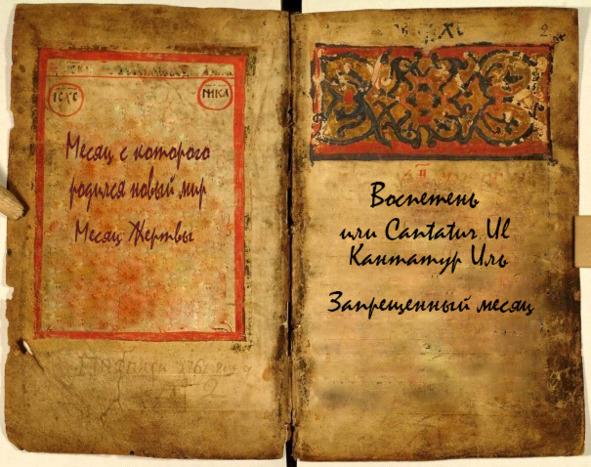 ІСХС
НИКА
Месяц с которого
родился новый мир
Месяц Жертвы
2
2
Воспетень
или Cantatur Ul
Кантатур Иль
Запрещенный месяц